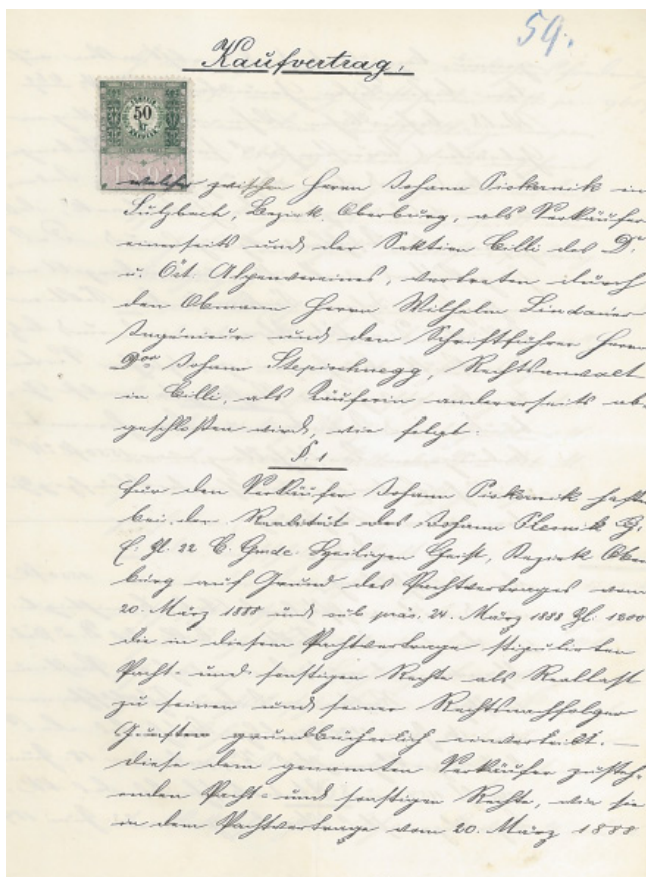 59.
Kaufvertrag,
50
KR
1893
welcher zwischen Herrn Johann Piskernik in
Sulzbach, Bezirk Oberburg, als Verkäufer
einerseits und der Sektion Cilli des D.
u. Öst. Alpenvereines, vertreten durch
den Obmann Herrn Wilhelm Lindauer
Ingenieur und den Schriftführer Herrn
Dor Johann Stepischnegg, Rechtsanwalt
in Cilli, als Käuferin andererseits ab-
geschlossen wird, wie folgt:
§. 1.
Für den Verkäufer Johann Piskernik haftet
bei der Realität des Johann Plesnik G.
E. Zl. 22 C. Gmde. Heiligen Geist, Bezirk Ober
burg auf Grund des Pachtvertrages vom
20. März 1888 und sub präs. 24. März 1888 Zl. 1300
die in diesem Pachtvertrage stipulirten
Pacht- und sonstigen Rechte als Reallast
zu seinen und seiner Rechtsnachfolger
Gunsten grundbücherlich einverleibt. —
Diese dem genannten Verkäufer zusteh-
enden Pacht- und sonstigen Rechte, wie sie
in dem Pachtvertrage vom 20. März 1888